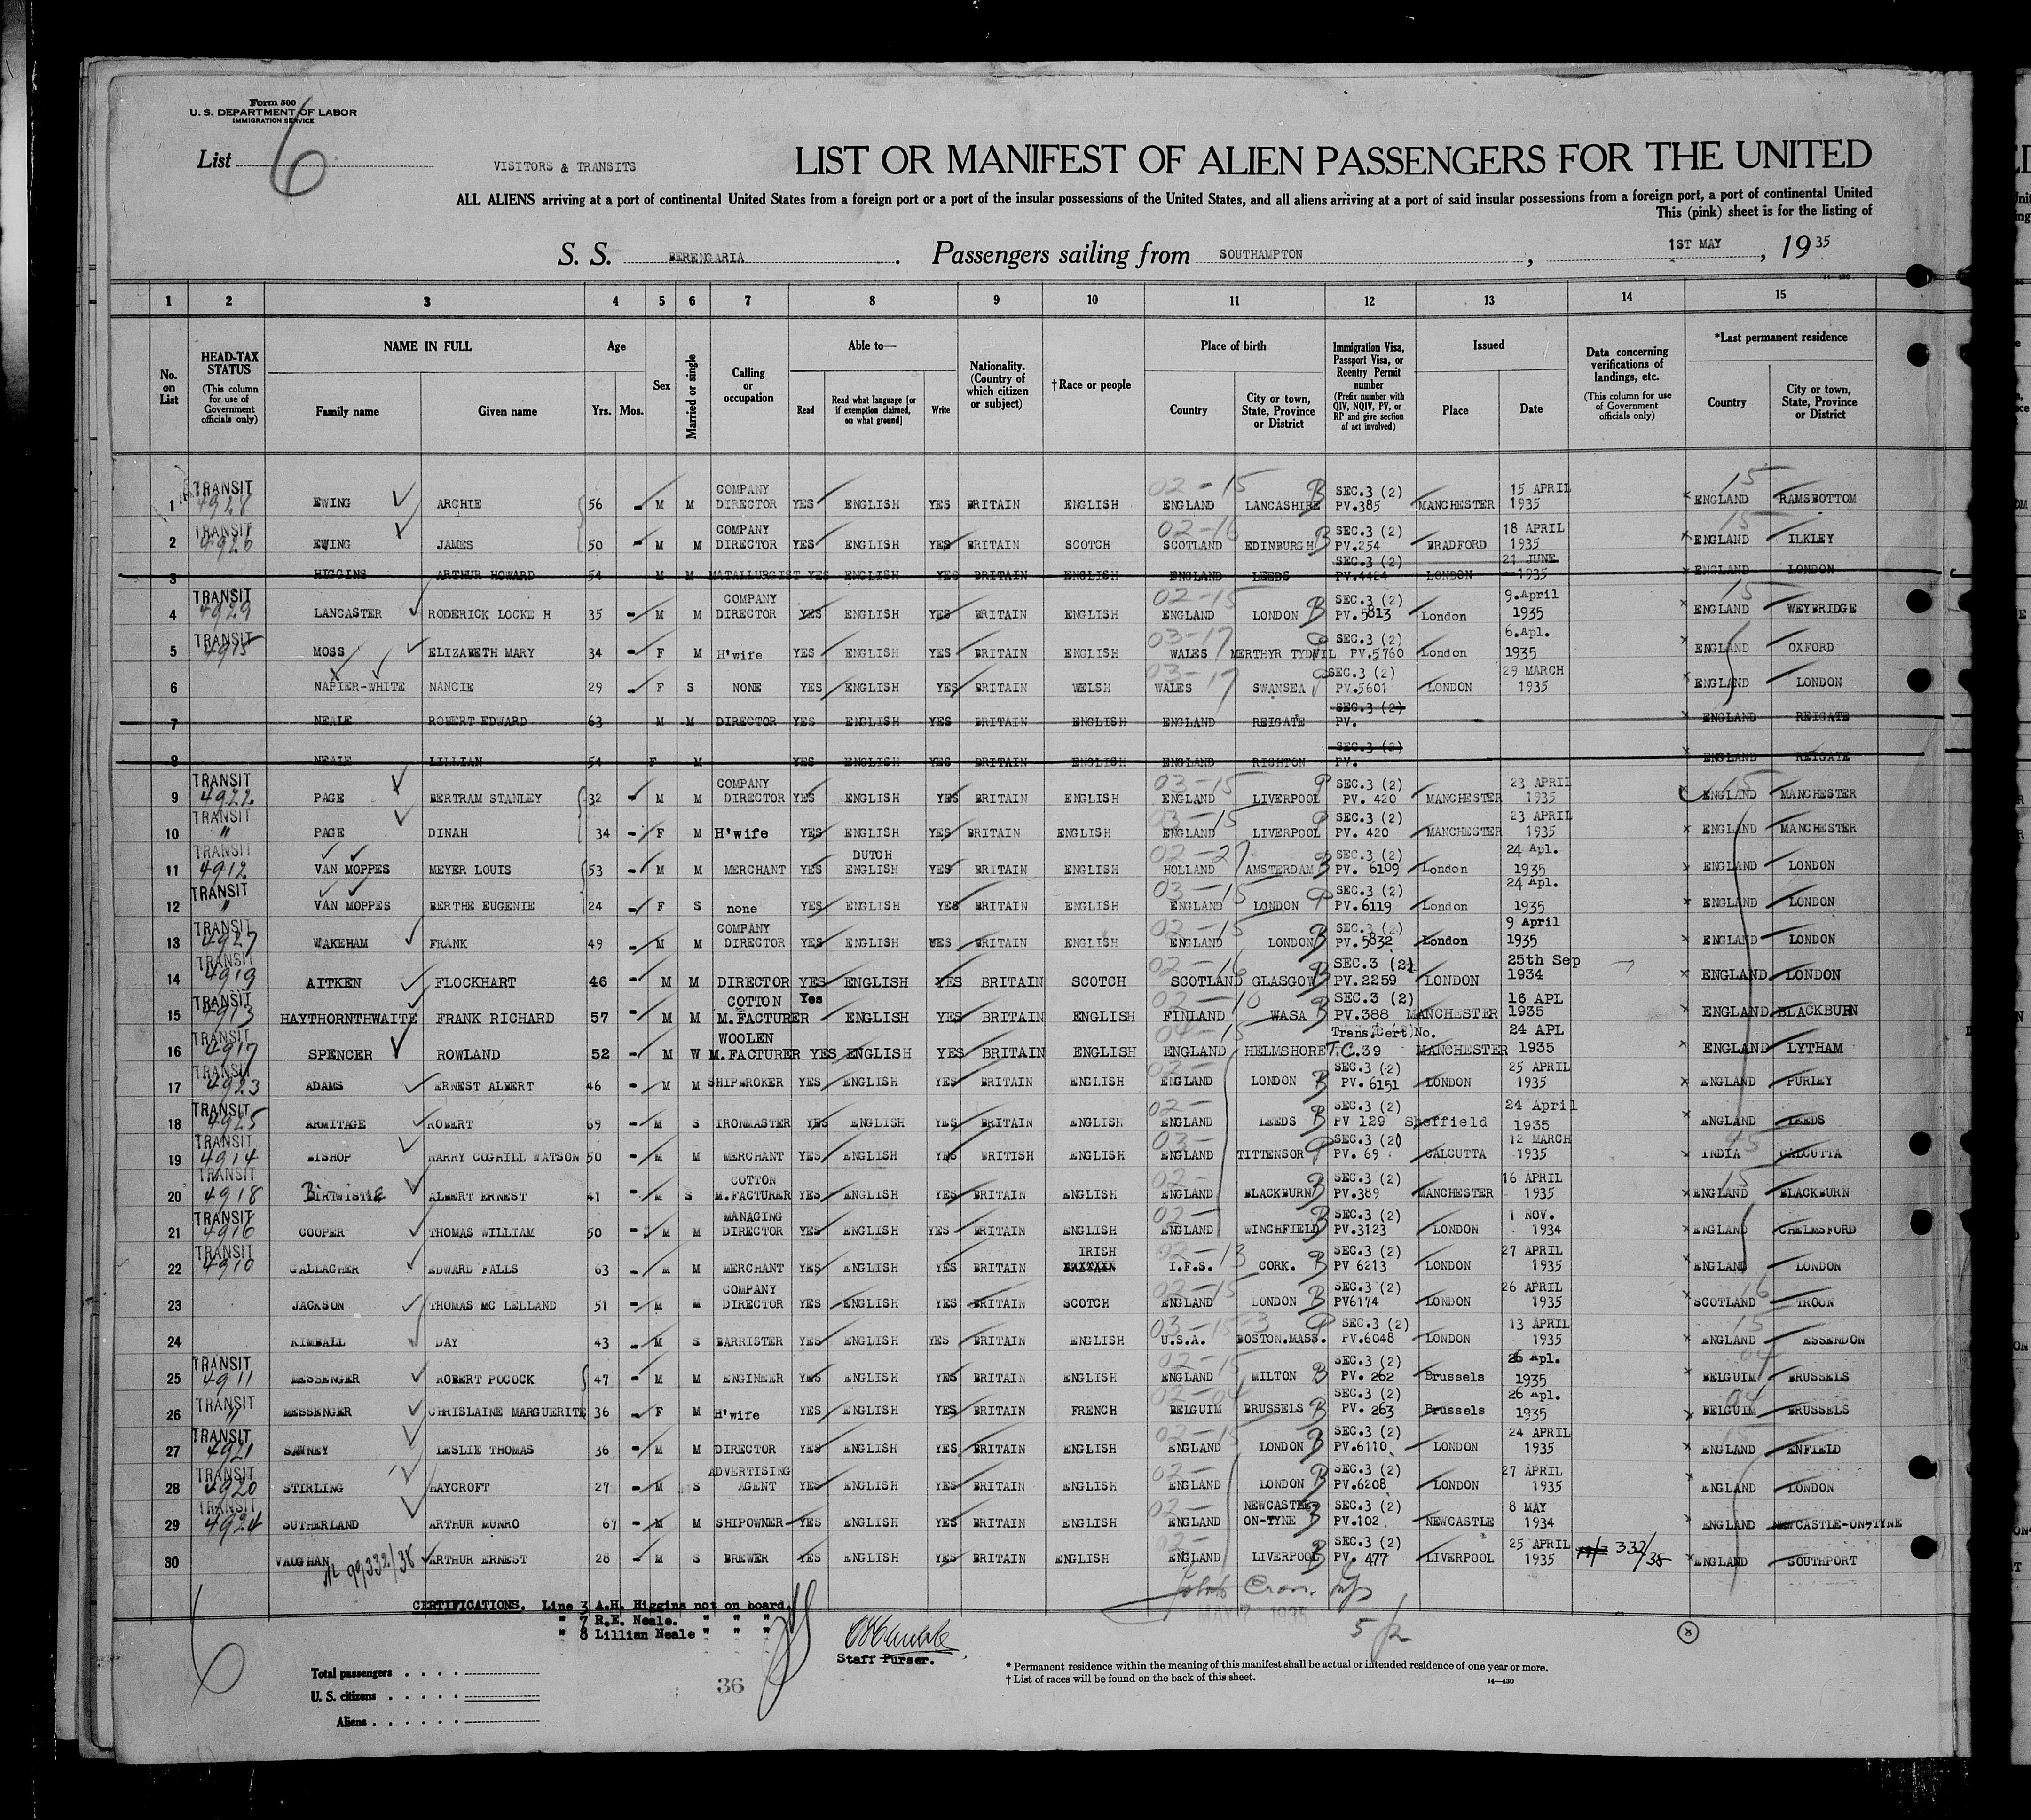 Form 500
U. S. DEPARTMENT OF LABOR
IMMIGRATION SERVICE
List 6
VISITORS & TRANSITS
LIST OR MANIFEST OF ALIEN PASSENGERS FOR THE UNITED
ALL ALIENS arriving at a port of continental United States from a foreign port or a port of the insular possessions of the United States, and all aliens arriving at a port of said insular possessions from a foreign port, a port of continental United
This (pink) sheet is for the listing of
S. S. BERENGARIA. Passengers sailing from SOUTHAMPTON, 1ST MAY, 1935
14—430
1 2 3 4 5 6 7 8 9 10 11 12 13 14 15
No. on List
HEAD-TAX STATUS (This column for use of Government officials only)
NAME IN FULL
Family name Given name
Age
Yrs. Mos.
Sex
Married or single
Calling or occupation
Able to—
Read Read what language [or if exemption claimed, on what ground] Write
Nationality. (Country of which citizen or subject)
†Race or people
Place of birth
Country City or town, State, Province or District
Immigration Visa, Passport Visa, or Reentry Permit number (Prefix number with QIV, NQIV, PV, or RP and give section of act involved)
Issued
Place Date
Data concerning verifications of landings, etc. (This column for use of Government officials only)
*Last permanent residence
Country City or town, State, Province or District
1 TRANSIT 4928 EWING ARCHIE 56 - M M COMPANY DIRECTOR YES ENGLISH YES BRITAIN ENGLISH 02-15 ENGLAND LANCASHIRE SEC.3 (2) PV.385 MANCHESTER 15 APRIL 1935 x ENGLAND 15 RAMSBOTTOM
2 TRANSIT 4926 EWING JAMES 50 - M M COMPANY DIRECTOR YES ENGLISH YES BRITAIN SCOTCH 02-16 SCOTLAND EDINBURGH SEC.3 (2) PV.254 BRADFORD 18 APRIL 1935 x ENGLAND 15 ILKLEY
3 HIGGINS ARTHUR HOWARD 54 M M MATALLURGIST YES ENGLISH YES BRITAIN ENGLISH ENGLAND LEEDS SEC.3 (2) PV.4424 LONDON 21 JUNE 1935 x ENGLAND LONDON
4 TRANSIT 4929 LANCASTER RODERICK LOCKE H 35 - M M COMPANY DIRECTOR YES ENGLISH YES BRITAIN ENGLISH 02-15 ENGLAND LONDON SEC.3 (2) PV.5813 London 9.April 1935 x ENGLAND 15 WEYBRIDGE
5 TRANSIT 4915 MOSS ELIZABETH MARY 34 - F M H'wife YES ENGLISH YES BRITAIN ENGLISH 03-17 WALES MERTHYR TYDVIL SEC.3 (2) PV.5760 London 6.Apl. 1935 x ENGLAND OXFORD
6 NAPIER-WHITE NANCIE 29 - F S NONE YES ENGLISH YES BRITAIN WELSH 03-17 WALES SWANSEA SEC.3 (2) PV.5601 LONDON 29 MARCH 1935 x ENGLAND LONDON
7 NEALE ROBERT EDWARD 63 M M DIRECTOR YES ENGLISH YES BRITAIN ENGLISH ENGLAND REIGATE SEC.3 (2) PV. x ENGLAND REIGATE
8 NEALE LILLIAN 54 F M YES ENGLISH YES BRITAIN ENGLISH ENGLAND RIGHTON SEC.3 (2) PV. x ENGLAND REIGATE
9 TRANSIT 4922 PAGE BERTRAM STANLEY 32 - M M COMPANY DIRECTOR YES ENGLISH YES BRITAIN ENGLISH 03-15 ENGLAND LIVERPOOL SEC.3 (2) PV. 420 MANCHESTER 23 APRIL 1935 ENGLAND 15 MANCHESTER
10 TRANSIT " PAGE DINAH 34 - F M H'wife YES ENGLISH YES BRITAIN ENGLISH 03-15 ENGLAND LIVERPOOL SEC.3 (2) PV. 420 MANCHESTER 23 APRIL 1935 x ENGLAND MANCHESTER
11 TRANSIT 4912 VAN MOPPES MEYER LOUIS 53 - M M MERCHANT YES DUTCH ENGLISH YES BRITAIN ENGLISH 02-27 HOLLAND AMSTERDAM SEC.3 (2) PV. 6109 London 24 Apl. 1935 x ENGLAND LONDON
12 TRANSIT " VAN MOPPES BERTHE EUGENIE 24 - F S none YES ENGLISH YES BRITAIN ENGLISH 03-15 ENGLAND LONDON SEC.3 (2) PV.6119 London 24 Apl. 1935 x ENGLAND LONDON
13 TRANSIT 4927 WAKEHAM FRANK 49 - M M COMPANY DIRECTOR YES ENGLISH YES BRITAIN ENGLISH 02-15 ENGLAND LONDON SEC.3 (2) PV.5832 London 9 April 1935 x ENGLAND LONDON
14 TRANSIT 4919 AITKEN FLOCKHART 46 - M M DIRECTOR YES ENGLISH YES BRITAIN SCOTCH 02-16 SCOTLAND GLASGOW SEC.3 (2) PV.2259 LONDON 25th Sep 1934 x ENGLAND LONDON
15 TRANSIT 4913 HAYTHORNTHWAITE FRANK RICHARD 57 - M M COTTON M.FACTURER Yes ENGLISH YES BRITAIN ENGLISH 02-10 FINLAND WASA SEC.3 (2) PV.388 MANCHESTER 16 APL 1935 x ENGLAND BLACKBURN
16 TRANSIT 4917 SPENCER ROWLAND 52 - M W WOOLEN M.FACTURER YES ENGLISH YES BRITAIN ENGLISH 04-15 ENGLAND HELMSHORE Trans.Cert)No. T.C.39 MANCHESTER 24 APL 1935 x ENGLAND LYTHAM
17 TRANSIT 4923 ADAMS ERNEST ALBERT 46 - M M SHIPBROKER YES ENGLISH YES BRITAIN ENGLISH 02- ENGLAND LONDON SEC.3 (2) PV. 6151 LONDON 25 APRIL 1935 x ENGLAND PURLEY
18 TRANSIT 4925 ARMITAGE ROBERT 69 - M S IRONMASTER YES ENGLISH YES BRITAIN ENGLISH 02- ENGLAND LEEDS SEC.3 (2) PV 129 Sheffield 24 April 1935 x ENGLAND LEEDS
19 TRANSIT 4914 BISHOP HARRY COGHILL WATSON 50 - M M MERCHANT YES ENGLISH YES BRITISH ENGLISH 03- ENGLAND TITTENSOR SEC.3 (2) PV. 69 CALCUTTA 12 MARCH 1935 x INDIA 45 CALCUTTA
20 TRANSIT 4918 BIRTWISTLE ALBERT ERNEST 41 - M S COTTON M.FACTURER YES ENGLISH YES BRITAIN ENGLISH 02- ENGLAND BLACKBURN SEC.3 (2) PV.389 MANCHESTER 16 APRIL 1935 x ENGLAND 15 BLACKBURN
21 TRANSIT 4916 COOPER THOMAS WILLIAM 50 - M M MANAGING DIRECTOR YES ENGLISH YES BRITAIN ENGLISH 02- ENGLAND WINCHFIELD SEC.3 (2) PV.3123 LONDON 1 NOV. 1934 x ENGLAND CHELMSFORD
22 TRANSIT 4910 GALLAGHER EDWARD FALLS 63 - M M MERCHANT YES ENGLISH YES BRITAIN IRISH BRITAIN 02-13 I.F.S. CORK. SEC.3 (2) PV 6213 LONDON 27 APRIL 1935 x ENGLAND LONDON
23 JACKSON THOMAS MC LELLAND 51 - M M COMPANY DIRECTOR YES ENGLISH YES BRITAIN SCOTCH 02-15 ENGLAND LONDON SEC.3 (2) PV6174 LONDON 26 APRIL 1935 SCOTLAND 16 TROON
24 KIMBALL DAY 43 - M S BARRISTER YES ENGLISH YES BRITAIN ENGLISH 03-15-3 U.S.A. BOSTON.MASS. SEC.3 (2) PV.6048 LONDON 13 APRIL 1935 x ENGLAND 15 ESSENDON
25 TRANSIT 4911 MESSENGER ROBERT POCOCK 47 - M M ENGINEER YES ENGLISH YES BRITAIN ENGLISH 02-15 ENGLAND MILTON SEC.3 (2) PV. 262 Brussels 26 Apl. 1935 x BELGUIM 04 BRUSSELS
26 TRANSIT " MESSENGER CHRISLAINE MARGUERITE 36 - F M H'wife YES ENGLISH YES BRITAIN FRENCH 02-04 BELGUIM BRUSSELS SEC.3 (2) PV. 263 Brussels 26 Apl. 1935 x BELGUIM 04 BRUSSELS
27 TRANSIT 4921 SAWNEY LESLIE THOMAS 36 - M M DIRECTOR YES ENGLISH YES BRITAIN ENGLISH 02-15 ENGLAND LONDON SEC.3 (2) PV.6110 LONDON 24 APRIL 1935 x ENGLAND 15 ENFIELD
28 TRANSIT 4920 STIRLING HAYCROFT 27 - M S ADVERTISING AGENT YES ENGLISH YES BRITAIN ENGLISH 02- ENGLAND LONDON SEC.3 (2) PV.6208 LONDON 27 APRIL 1935 x ENGLAND LONDON
29 TRANSIT 4924 SUTHERLAND ARTHUR MUNRO 67 - M M SHIPOWNER YES ENGLISH YES BRITAIN ENGLISH 02- ENGLAND NEWCASTLE-ON-TYNE SEC.3 (2) PV.102 NEWCASTLE 8 MAY 1934 x ENGLAND NEWCASTLE-ON-TYNE
30 VAUGHAN 99332/38 ARTHUR ERNEST 28 - M S BREWER YES ENGLISH YES BRITAIN ENGLISH 02- ENGLAND LIVERPOOL SEC.3 (2) PV. 477 LIVERPOOL 25 APRIL 1935 332/38 x ENGLAND SOUTHPORT
CERTIFICATIONS. Line 3 A.H. Higgins not on board.
" 7 R.E. Neale. " " "
" 8 Lillian Neale " " "
MAY 7 1935
Staff Purser.
Total passengers
U. S. citizens
Aliens
36
* Permanent residence within the meaning of this manifest shall be actual or intended residence of one year or more.
† List of races will be found on the back of this sheet.
14—430